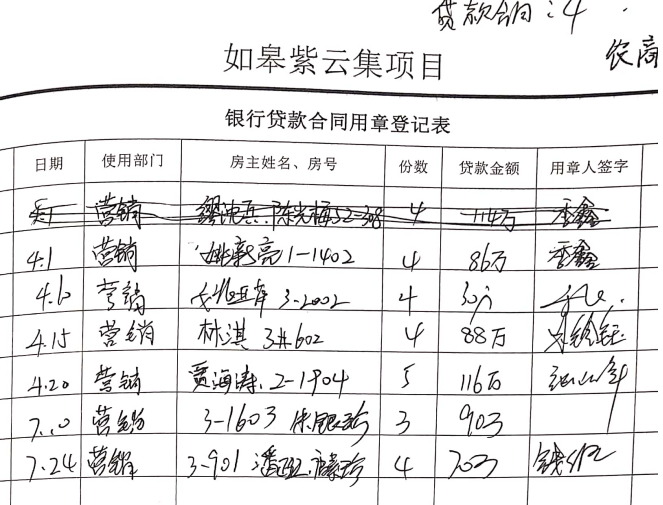 贷款合同：4
农商
如皋紫云集项目
银行贷款合同用章登记表
日期 使用部门 房主姓名、房号 份数 贷款金额 用章人签字
营销 陈光梅52-308 4 114万
4.1 营销 姚新亮1-1402 4 86万
4.10 营销 3-2002 4 30万
4.15 营销 林淇 3#602 4 88万
4.20 营销 贾海涛. 2-1904 5 116万
7.10 营销 3-1603 银珍 3 90万
7.24 营销 3-901 潘 4 70万